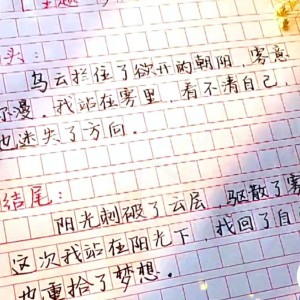 头：
乌云拦住了欲升的朝阳，雾意
弥漫．我站在雾里，看不清自己，
也迷失了方向．
结尾：
阳光刺破了云层，驱散了雾
这次我站在阳光下，找回了自
也重拾了梦想．